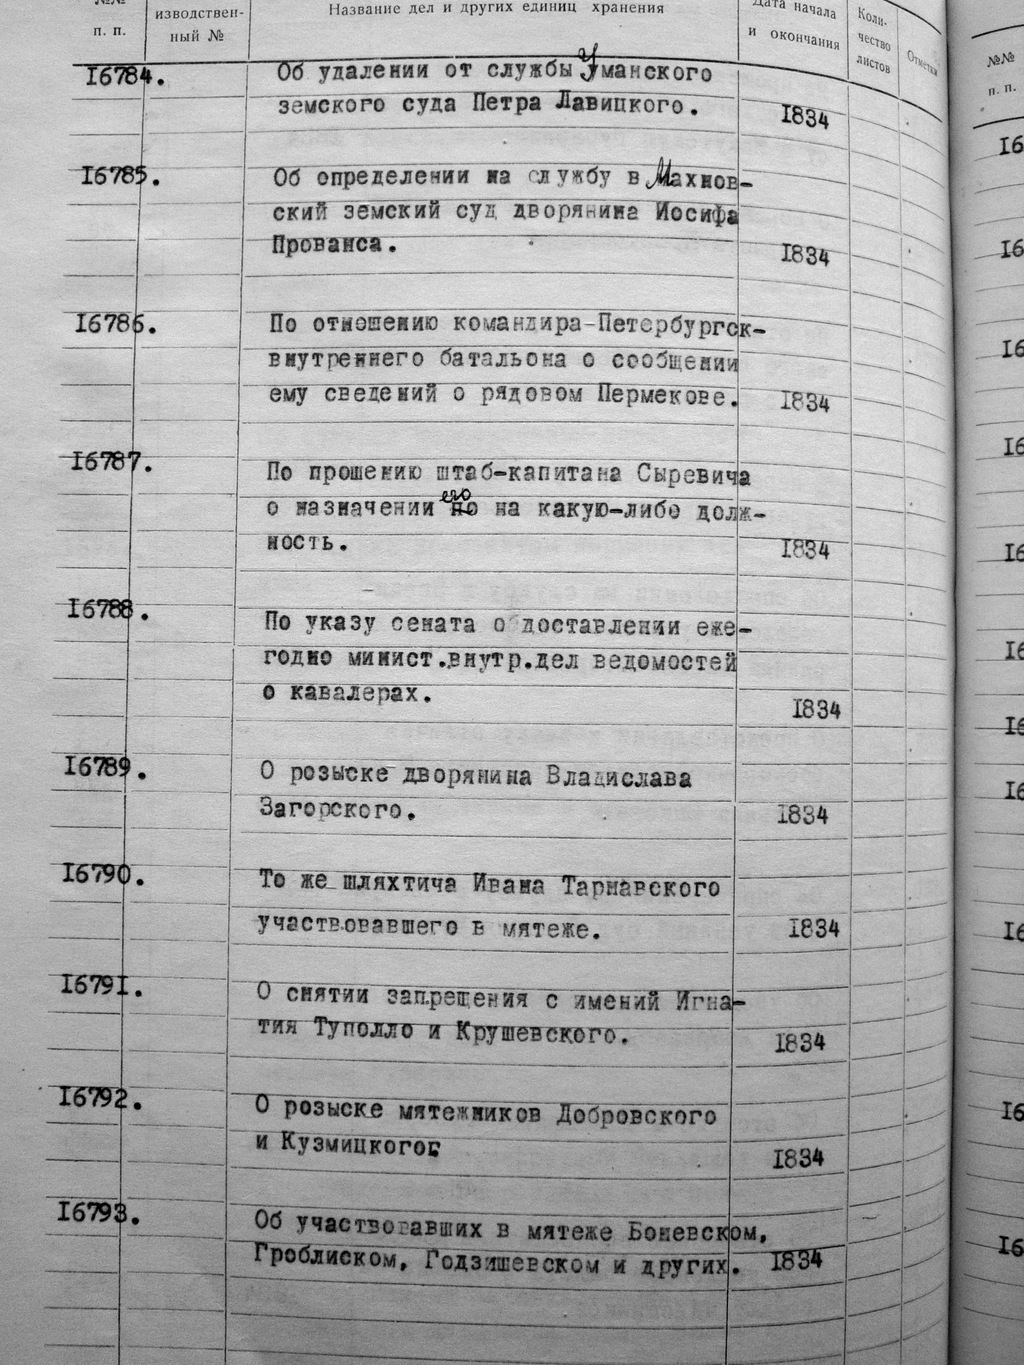 №№
п. п.
изводствен-
ный №
Название дел и других единиц хранения
Дата начала
и окончания
Коли-
чество
листов
Отметки
16784. Об удалении от службы Уманского
земского суда Петра Лавицкого. 1834
16785. Об определении на службу в Махнов-
ский земский суд дворянина Иосифа
Прованса. 1834
16786. По отношению командира-Петербургск-
внутреннего батальона о сообщении
ему сведений о рядовом Пермекове. 1834
16787. По прошению штаб-капитана Сыревича
о назначении его на какую-либо долж-
ность. 1834
16788. По указу сената о доставлении еже-
годно минист.внутр.дел ведомостей
о кавалерах. 1834
16789. О розыске дворянина Владислава
Загорского. 1834
16790. То же шляхтича Ивана Тарнавского
участвовавшего в мятеже. 1834
16791. О снятии запрещения с имений Игна-
тия Туполло и Крушевского. 1834
16792. О розыске мятежников Добровского
и Кузмицкого. 1834
16793. Об участвовавших в мятеже Боневском,
Гроблиском, Годзишевском и других. 1834
№№
п. п.
16
16
16
16
16
16
16
16
16
16
16